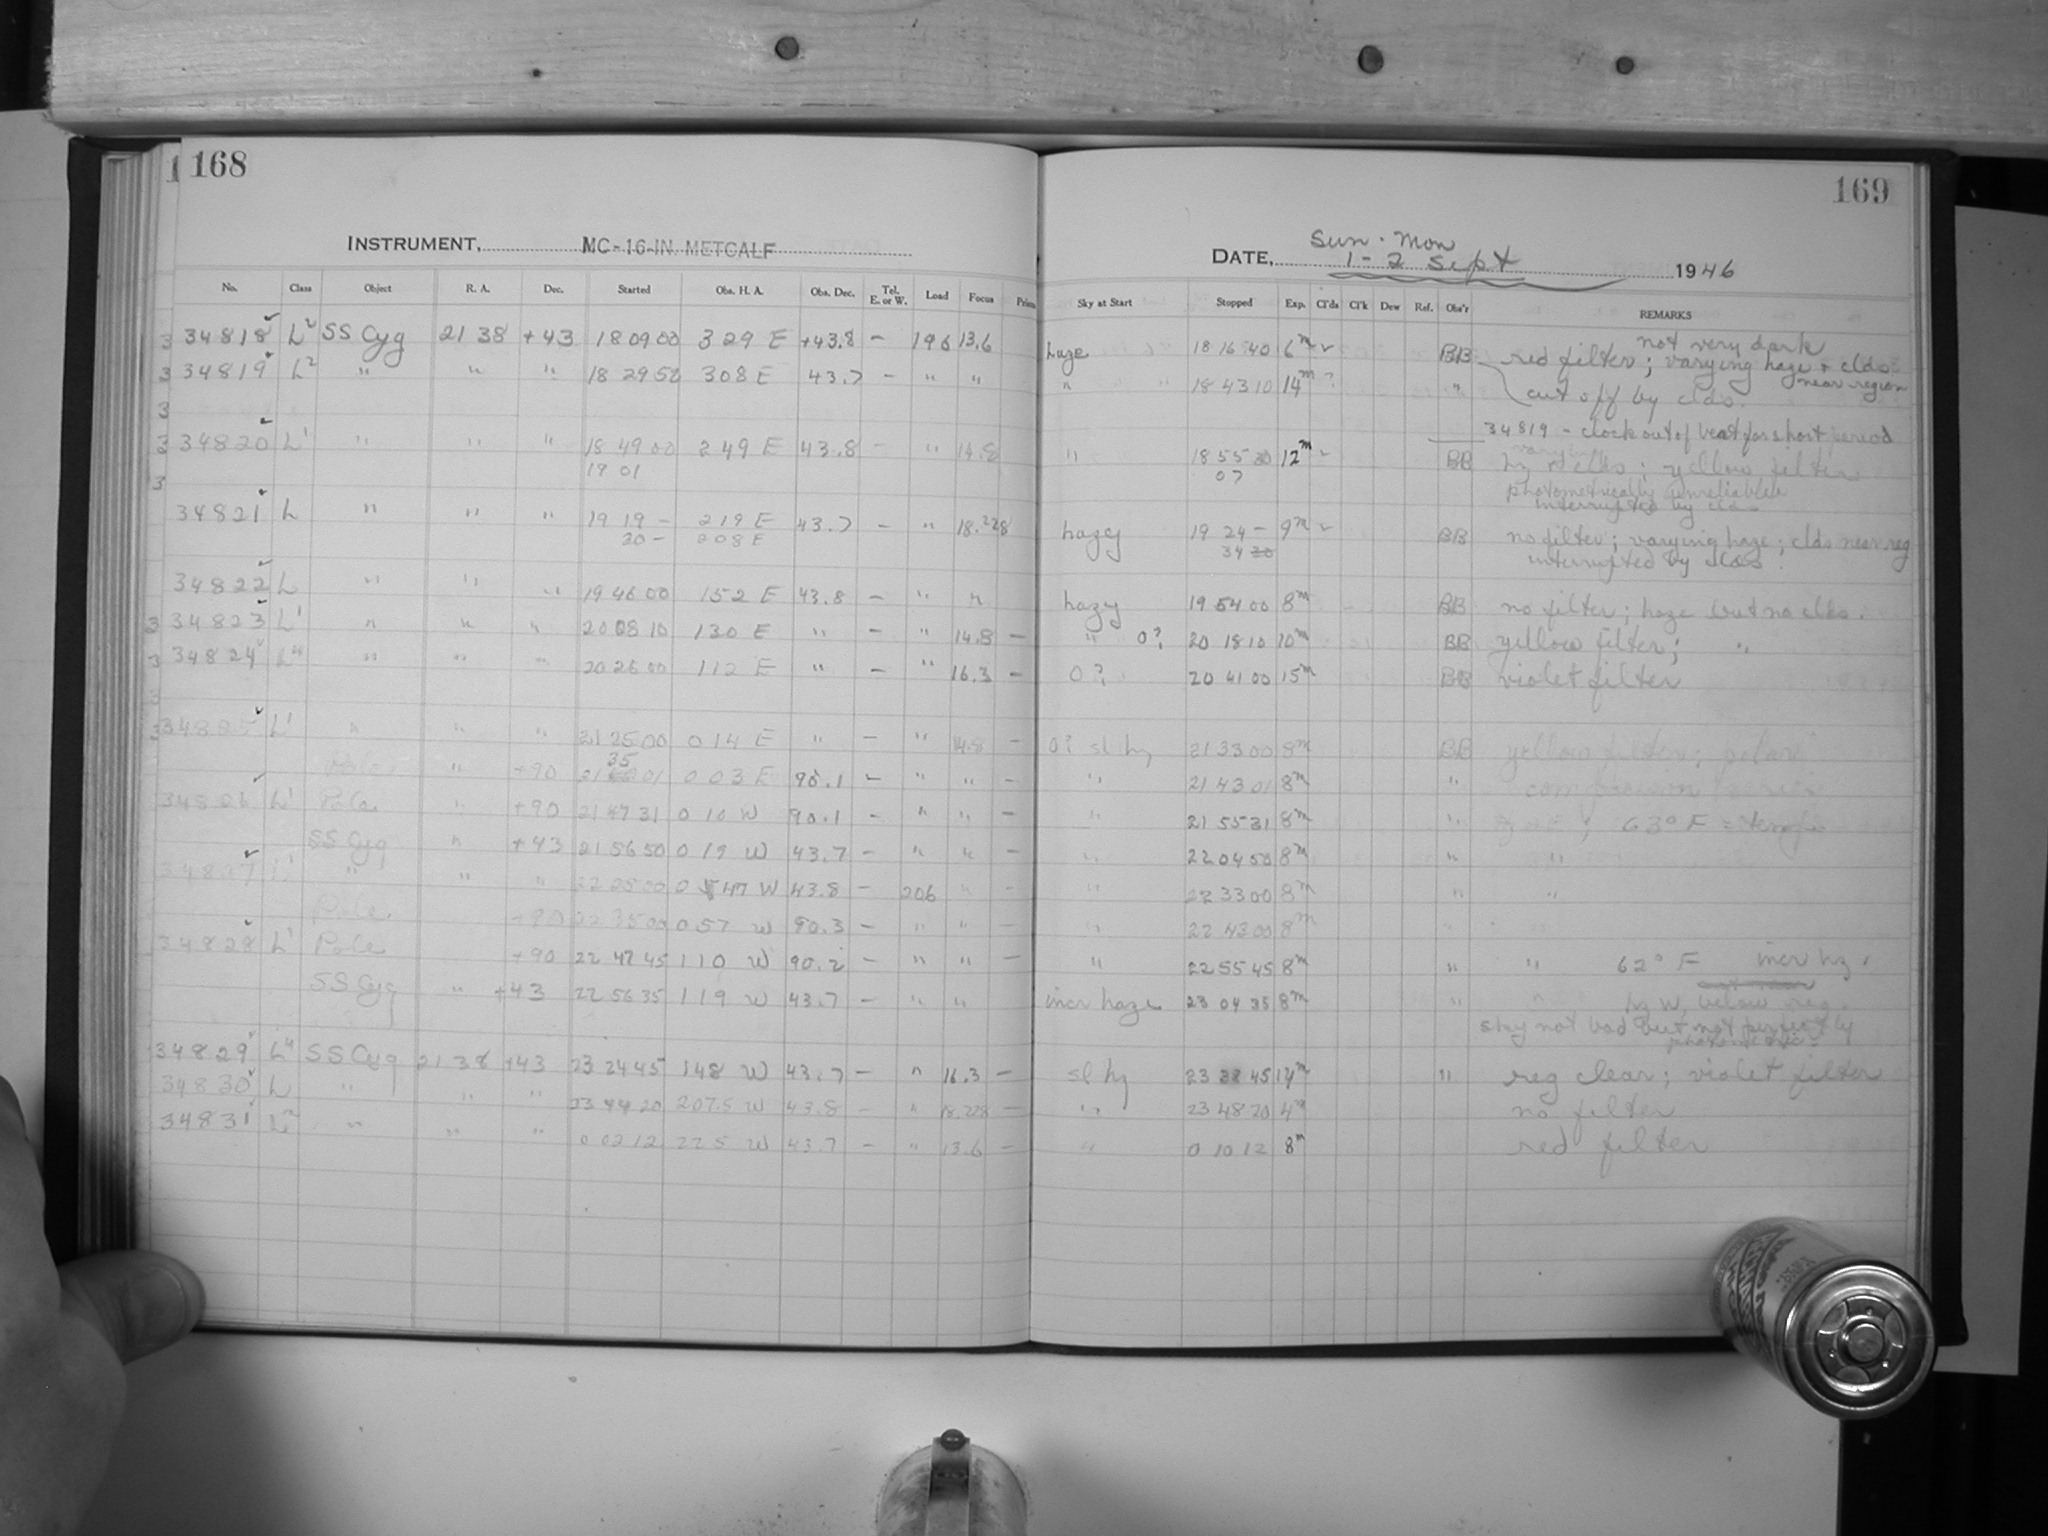 168
INSTRUMENT, MC-16-IN. METCALF
No. Class Object R. A. Dec. Started Obs. H. A. Obs. Dec. Tel. E. or W. Load Focus Prism
34818 L2 SS Cyg 21 38 +43 18 09 00 3 29 E +43.8 – 196 13.6
34819 L2 " " " 18 29 50 3 08 E 43.7 – " "
34820 L1 " " " 18 49 00 2 49 E 43.8 – " 14.8
19 01
34821 L " " " 19 19 – 2 19 E 43.7 – " 18.228
30 – 2 08 E
34822 L " " " 19 46 00 1 52 E 43.8 – " "
34823 L1 " " " 20 08 10 1 30 E " – " 14.8 –
34824 L4 " " " 20 26 00 1 12 E " – " 16.3 –
34825 L1 " " " 21 25 00 0 14 E " – " 14.8 –
Pole " +90 21 35 01 0 03 E 90.1 – " " –
34826 L1 Pole " +90 21 47 31 0 10 W 90.1 – " " –
SS Cyg " +43 21 56 50 0 19 W 43.7 – " " –
34827 L1 " " " 22 25 00 0 47 W 43.8 – 206 " –
Pole +90 22 35 00 0 57 W 90.3 – " " –
34828 L1 Pole +90 22 47 45 1 10 W 90.2 – " " –
SS Cyg " +43 22 56 35 1 19 W 43.7 – " "
34829 L4 SS Cyg 21 38 +43 23 24 45 1 48 W 43.7 – " 16.3 –
34830 L " " " 23 44 20 2 07.5 W 43.8 – " 18.228 –
34831 L2 " " " 0 02 12 2 25 W 43.7 – " 13.6 –
169
Sun - Mon
DATE, 1-2 Sept 1946
Sky at Start Stopped Exp. Cl'ds Cl'k Dew Ref. Obs'r REMARKS
not very dark
haze 18 16 40 6m BB red filter; varying haze + clds
near region
" 18 43 10 14m ? " cut off by clds.
34819 – clock out of beat for short period
" 18 55 12m BB hz + clds; yellow filter
07 photometrically unreliable
interrupted by clds
hazy 19 24 – 9m BB no filter; varying haze; clds near reg
34 interrupted by clds.
hazy 19 54 00 8m BB no filter; haze but no clds.
" 0? 20 18 10 10m BB yellow filter; "
0? 20 41 00 15m BB violet filter
0? sl hz 21 33 00 8m BB yellow filter; polar
" 21 43 01 8m " comparison series
" 21 55 31 8m " 63° F = temp
" 22 04 50 8m " "
" 22 33 00 8m " "
" 22 43 00 8m
" 22 55 45 8m " " 62° F incr hz.
incr haze 23 04 35 8m " " hz W, below reg.
sky not bad but not perfectly
photometric
sl hz 23 38 45 14m " reg clear; violet filter
" 23 48 20 4m no filter
" 0 10 12 8m red filter